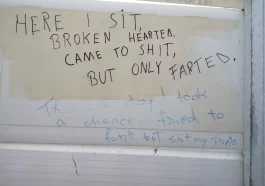 HERE I SIT,
BROKEN HEARTED.
CAME TO SHIT,
BUT ONLY FARTED.
I took
a chance, tried to
fart but shit my pants